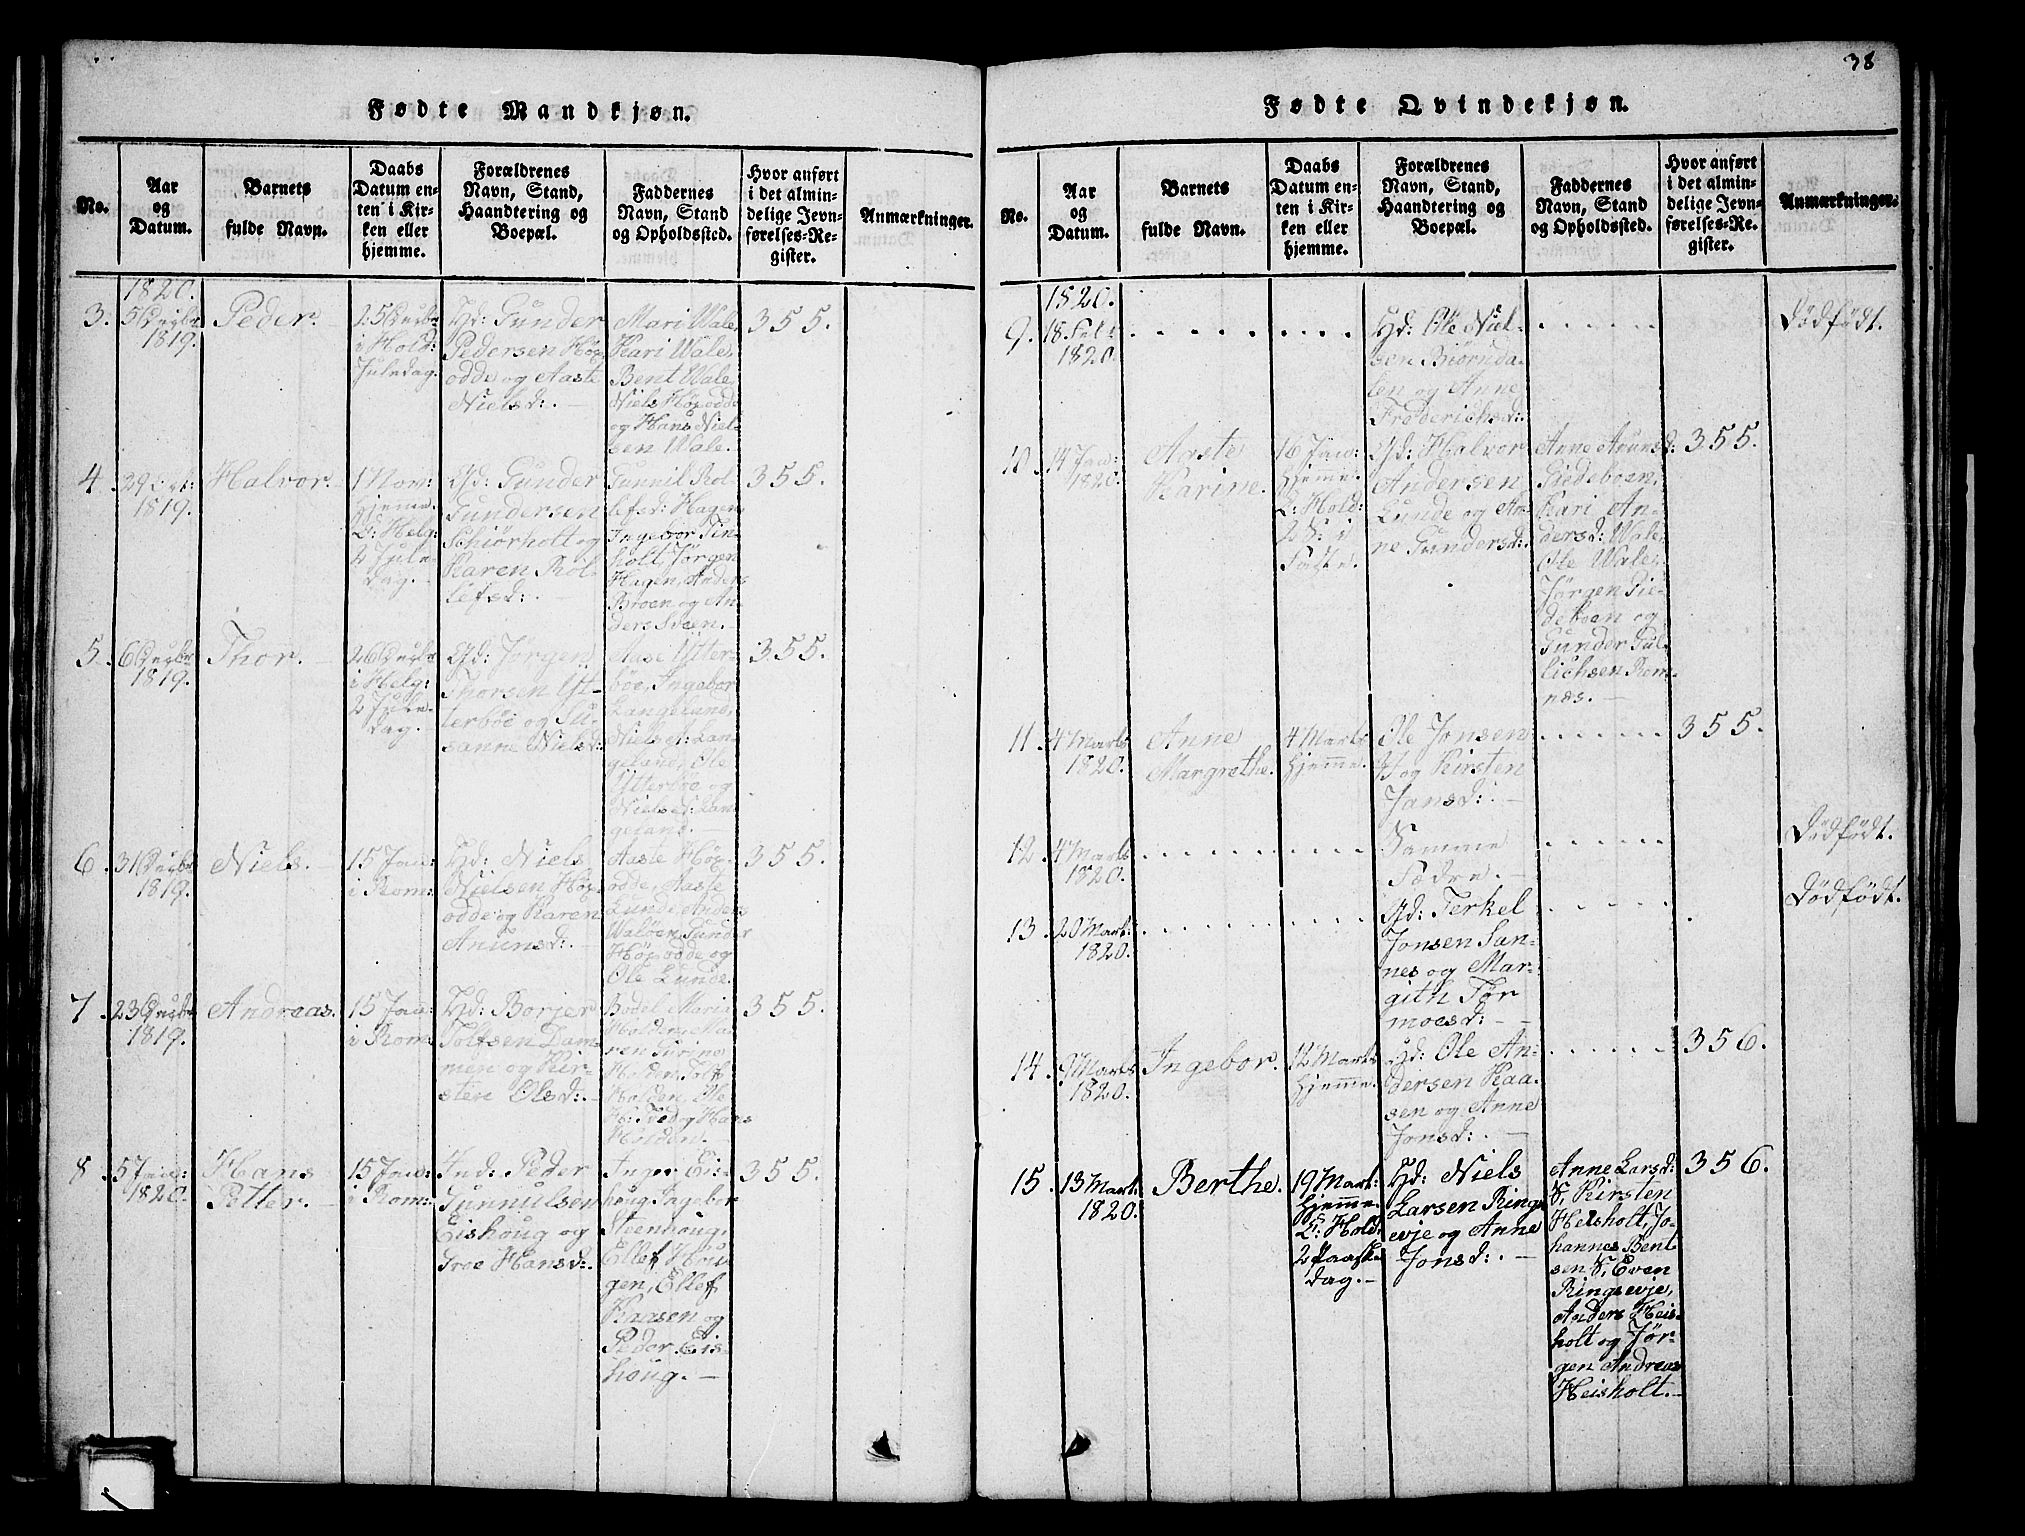 38
Fødte Mandkjøn.
No.
Aar
og
Datum.
Barnets
fulde Navn.
Daabs
Datum en-
ten i Kir-
ken eller
hjemme.
Forældrenes
Navn, Stand,
Haandtering og
Boepæl.
Faddernes
Navn, Stand
og Opholdssted.
Hvor anført
i det almin-
delige Jevn-
førelses-Re-
gister.
Anmærkninger.
1820.
3.
1819.
Peder.
i Hold:
Juledag.
Gd: Gunder
Pedersen Høy-
odde og Aaste
Nielsd:. -
Mari Wale,
Kari Wale,
Bent Wale,
Niels Høyodde
og Hans Niel-
sen Wale. -
355.
4.
1819.
Halvor. -
1 Nov:
hjeme.
2 Jule
dag. -
Gd: Gunder
Gundersen
Schiørholt og
Karen Rol-
lefsd:. -
Gunnil Rol-
lefsd: Hagen,
Ingebor Tin-
holt, Jørgen
Hagen, Anders
Broen og An-
ders Sveen. -
355.
5.
1819.
Thor. -
i Helg:
2 Jule-
dag. -
Gd: Jørgen
Thorsen Yt-
terbøe og Su-
sanne Nielsd:
Aase Ytter-
bøe, Ingebor
Langeland,
Niels Lan-
geland, Ole
Ytterbøe og
geland. -
355.
6.
1819.
Niels. -
15 Jan:
i Rom:
Gd: Niels
Nielsen Høy-
odde og Karen
Anunsd:. -
Aaste Høy-
odde, Aaste
Lunde, Anders
Waløen, Gunder
Høyodde og
Ole Lunde.
355.
7.
1819.
Andreas.
15 Jan:
i Rom:
Gd: Borjer
Tolfsen Dam-
men og Kir-
stere Olsd:. -
Bodel Maria
Holden, Ma-
ren Gurine
Holden, Tolf
Holden, Ole
H: Tved og Hans
Holden. -
355.
8.
5 Jan:
1820.
Hans
Petter. -
15 Jan:
i Rom:
Ind: Peder
Gunnulsen
Eishoug og
Groe Hansd:.
Inger Eis-
houg, Ingebor
Steenhoug,
Ellef Hou-
gen, Ellef
Kaasen og
Peder Eis-
houg. -
355.
Fødte Qvindekjøn.
No.
Aar
og
Datum.
Barnets
fulde Navn.
Daabs
Datum en-
ten i Kir-
ken eller
hjemme.
Forældrenes
Navn, Stand,
Haandtering og
Boepæl.
Faddernes
Navn, Stand
og Opholdssted.
Hvor anført
i det almin-
delige Jevn-
førelses-Re-
gister.
Anmærkninger.
1820.
9.
18 Feb:
1820.
Gd: Ole Niel-
sen Biørnda-
len og Anne
Frederichsd:.
Dødfødt.
10.
14 Jan:
1820.
Aaste
Karine.
16 Jan:
hjemme.
L: Hold:
2 S: i
Faste.
Gd: Halvor
Andersen
Lunde og An-
ne Gundersd:.
Anne Anunsd:
Tiedeboen,
Kari An-
dersd: Wale,
Ole Wale,
Jørgen Tie-
deboen og
Gunder Gul-
lichsen Rom-
næs. -
355.
11.
4 Marts
1820.
Anne
Margrethe.
4 Marts
hjemme.
Ole Jonsen
og Kirsten
Jansd:. -
355.
12.
4 Marts
1820.
Samme
Fædre. -
Dødfødt.
13.
20 Mart:
1820.
Gd: Terkel
Jonsen San-
nes og Mar-
gith Tør
moesd: -
Dødfødt.
14.
9 Marts
1820.
Ingebor.
12 Marts
hjemme.
Gd: Ole An-
dersen Kaa-
sen og Anne
Jonsd:. -
356.
15.
13 Mart:
1820.
Berthe.
19 Mart:
hjemme.
L: Hold:
2 Paaske
dag. -
Gd: Niels
Larsen Rings
evje og Anne
Jonsd:. -
Anne Larsd:
Kirsten
Heisholt, Jo-
hannes Bent
sen Even
Ringsevje,
Anders Heis-
holt og Jør-
gen Andreas
Heisholt. -
356.